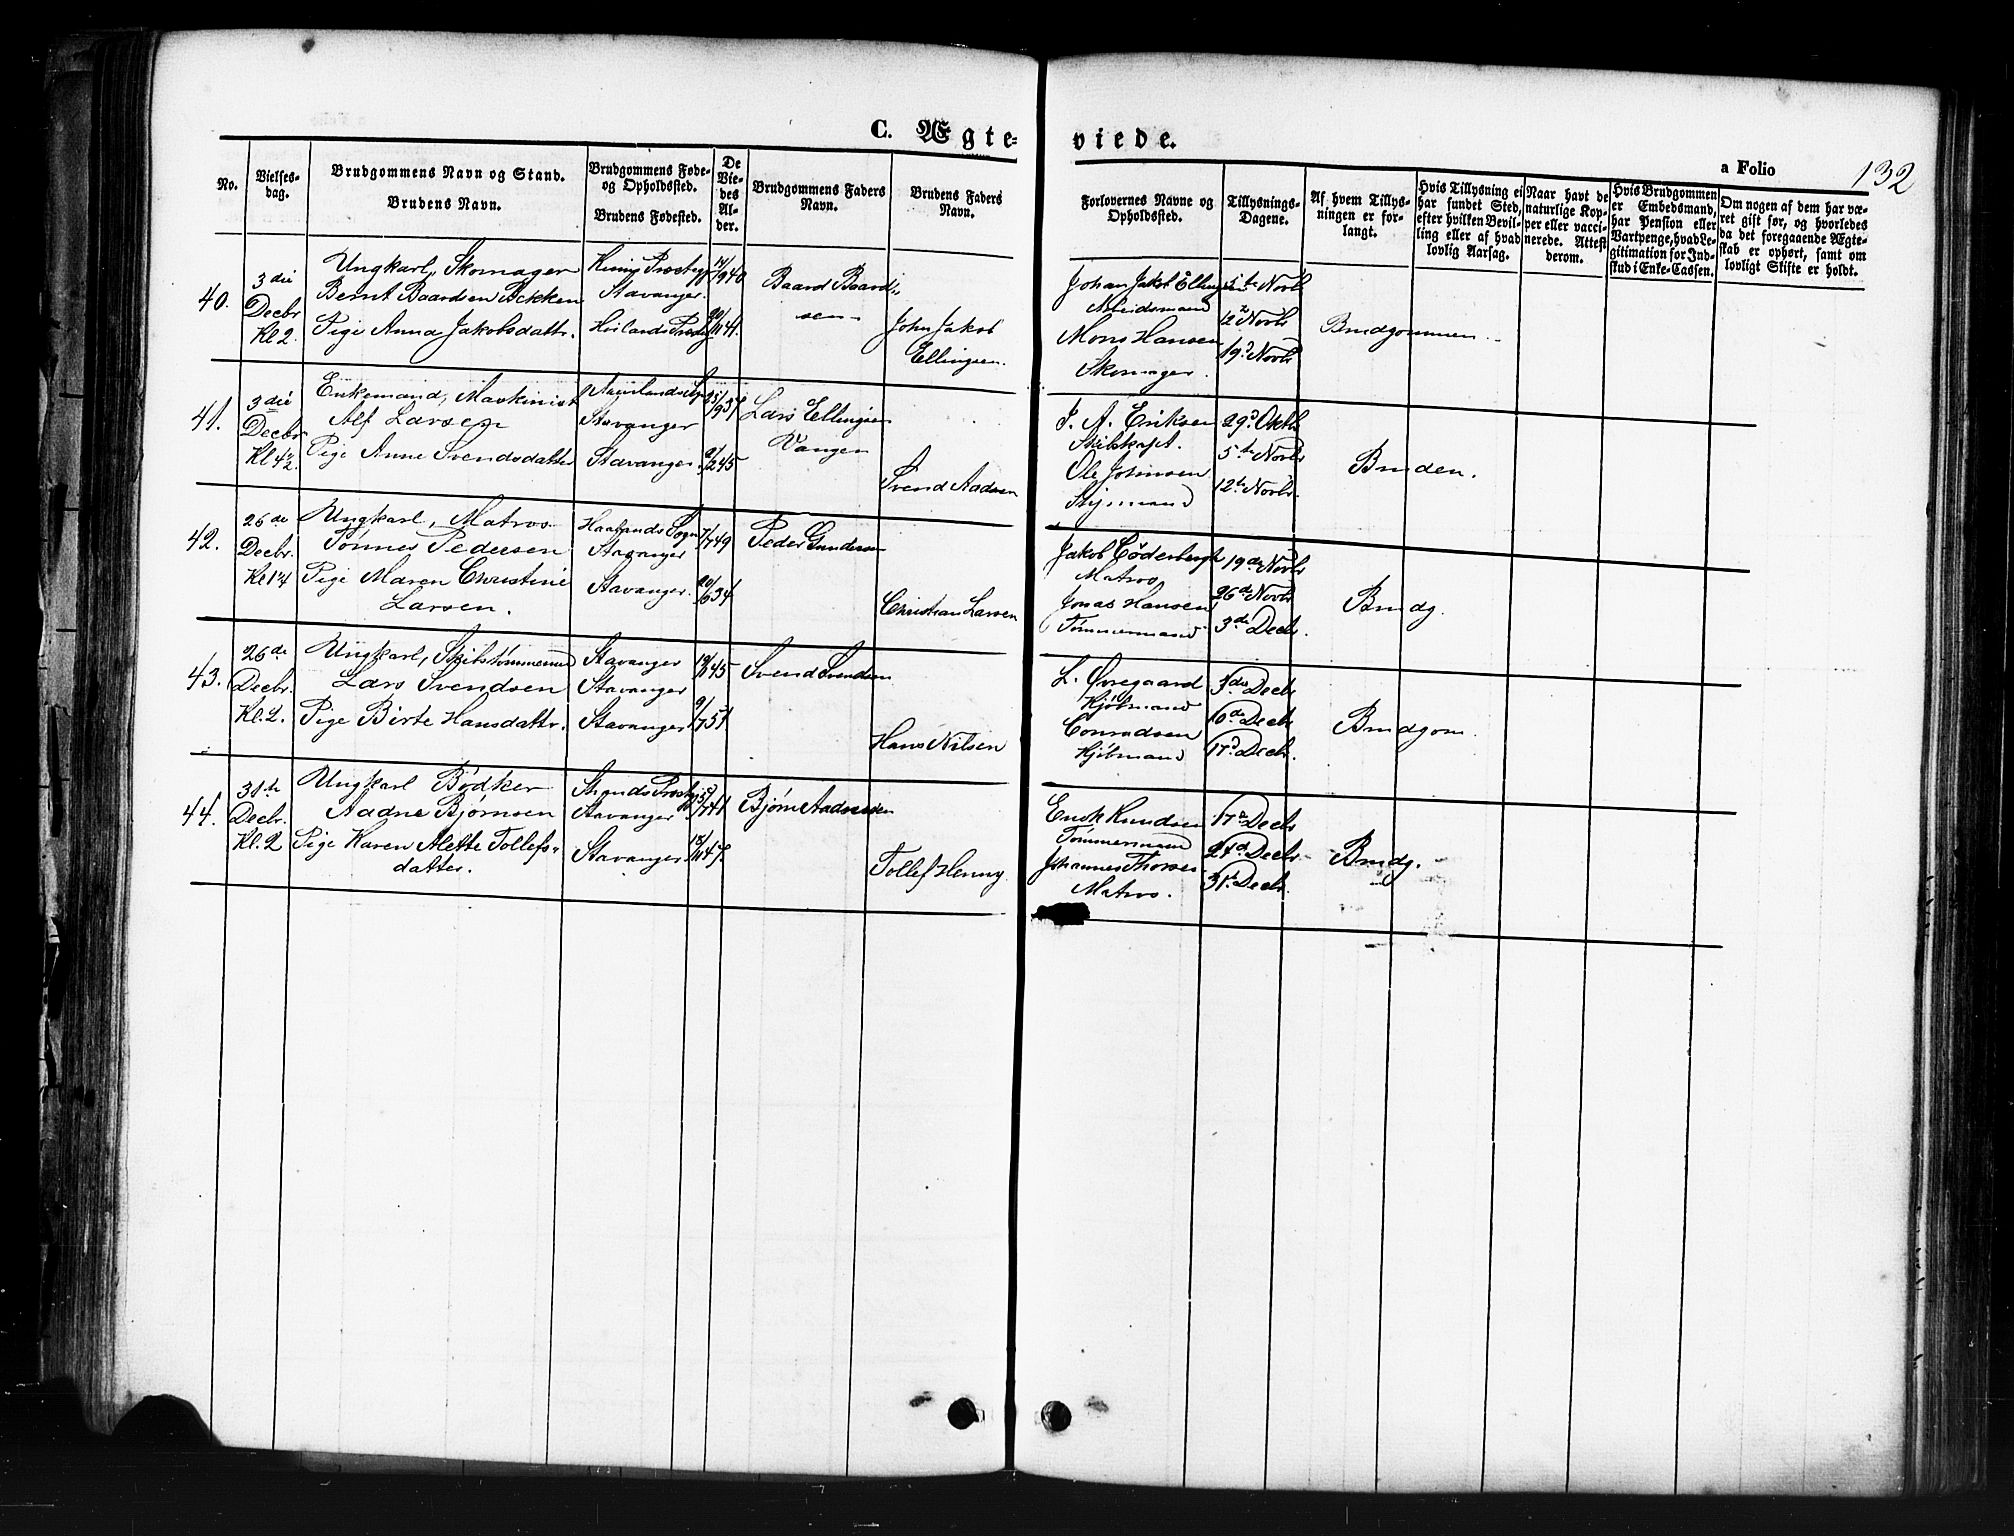 C. Ægte-
viede.
a Folio
132
No.
Vielses-
dag.
Brudgommens Navn og Stand.
Brudens Navn.
Brudgommens Føde-
og Opholdssted.
Brudens Fødested.
De
Vie-
des
Al-
der.
Brudgommens Faders
Navn.
Brudens Faders
Navn.
Forlovernes Navne og
Opholdssted.
Tillysnings-
Dagene.
Af hvem Tillys-
ningen er for-
langt.
Hvis Tillysning ei
har fundet Sted,
efter hvilken Bevil-
ling eller af hvad
lovlig Aarsag.
Naar havt de
naturlige Kop-
per eller vacci-
nerede. Attest
derom.
Hvis Brudgommen
er Embedsmand,
har Pension eller
Vartpenge, hvad Le-
gitimation for Ind-
skud i Enke-Cassen.
Om nogen af dem har væ-
ret gift før, og hvorledes
da det foregaaende Ægte-
skab er ophørt, samt om
lovligt Skifte er holdt.
40.
3 die
Decbr
Kl 2.
Ungkarl, Skomager
Bernt Baardsen
Pige Anna Jakobsdattr.
Stavanger.
Baard Baard-
sen
John Jakob
Ellingsen.
Johan Jakob Ellingsen
Arbeidsmand
Mons Hansen
Skomager.
5te Novb
12te Novbr
19d Novbr
Brudgommen
41.
3 die
Decbr
Kl 4½
Enkemand, Maskinist
Alf Larsen
Pige Anne Svendsdatter
Stavanger
Stavanger.
9/2 45
Lars Ellingsen
Vangen
Svend Aadsen
J. A. Eriksen
Skibskapt.
Ole Johnsen
Styrmand
29d Oktb
5te Novbr
12te Novbr.
Bruden.
42.
26de
Decbr.
Ungkarl, Matros
Tønnes Pedersen
Pige Maren Christine
Larsen.
Haalands Sogn
Stavanger
Stavanger.
7/7 49
Peder Gundersen
Christian Larsen
Jakob Cöderbergh
Matros
Jonas Hansen
Tømmermand
19de Novbr
26de Novbr
3de Decbr.
Brudg.
43.
26de
Decbr.
Kl. 2.
Ungkarl, Skibstømmermd
Lars Svendsen
Pige Birte Hansdattr.
Stavanger
Stavanger
Stavanger
9/7 51
Svend Svendsen
Hans Nilsen
L. Øvregaard
Kjøbmand
Conradsen
Kjöbmand
3die Decbr
10de Decbr
17d Decbr.
Brudgom.
44.
31te
Decbr.
Kl. 2
Ungkarl Bødker
Aadne Bjørnsen
Pige Karen Alette Tollefs-
datter.
Strands Præstg
Stavanger
Stavanger.
Bjørn Aadnesen
Tollef Henny
Enok Knudsen
Tømmermand
Johannes Thorsen
Matros.
17de Decbr
24d Decbr
31te Decbr.
Brudg.